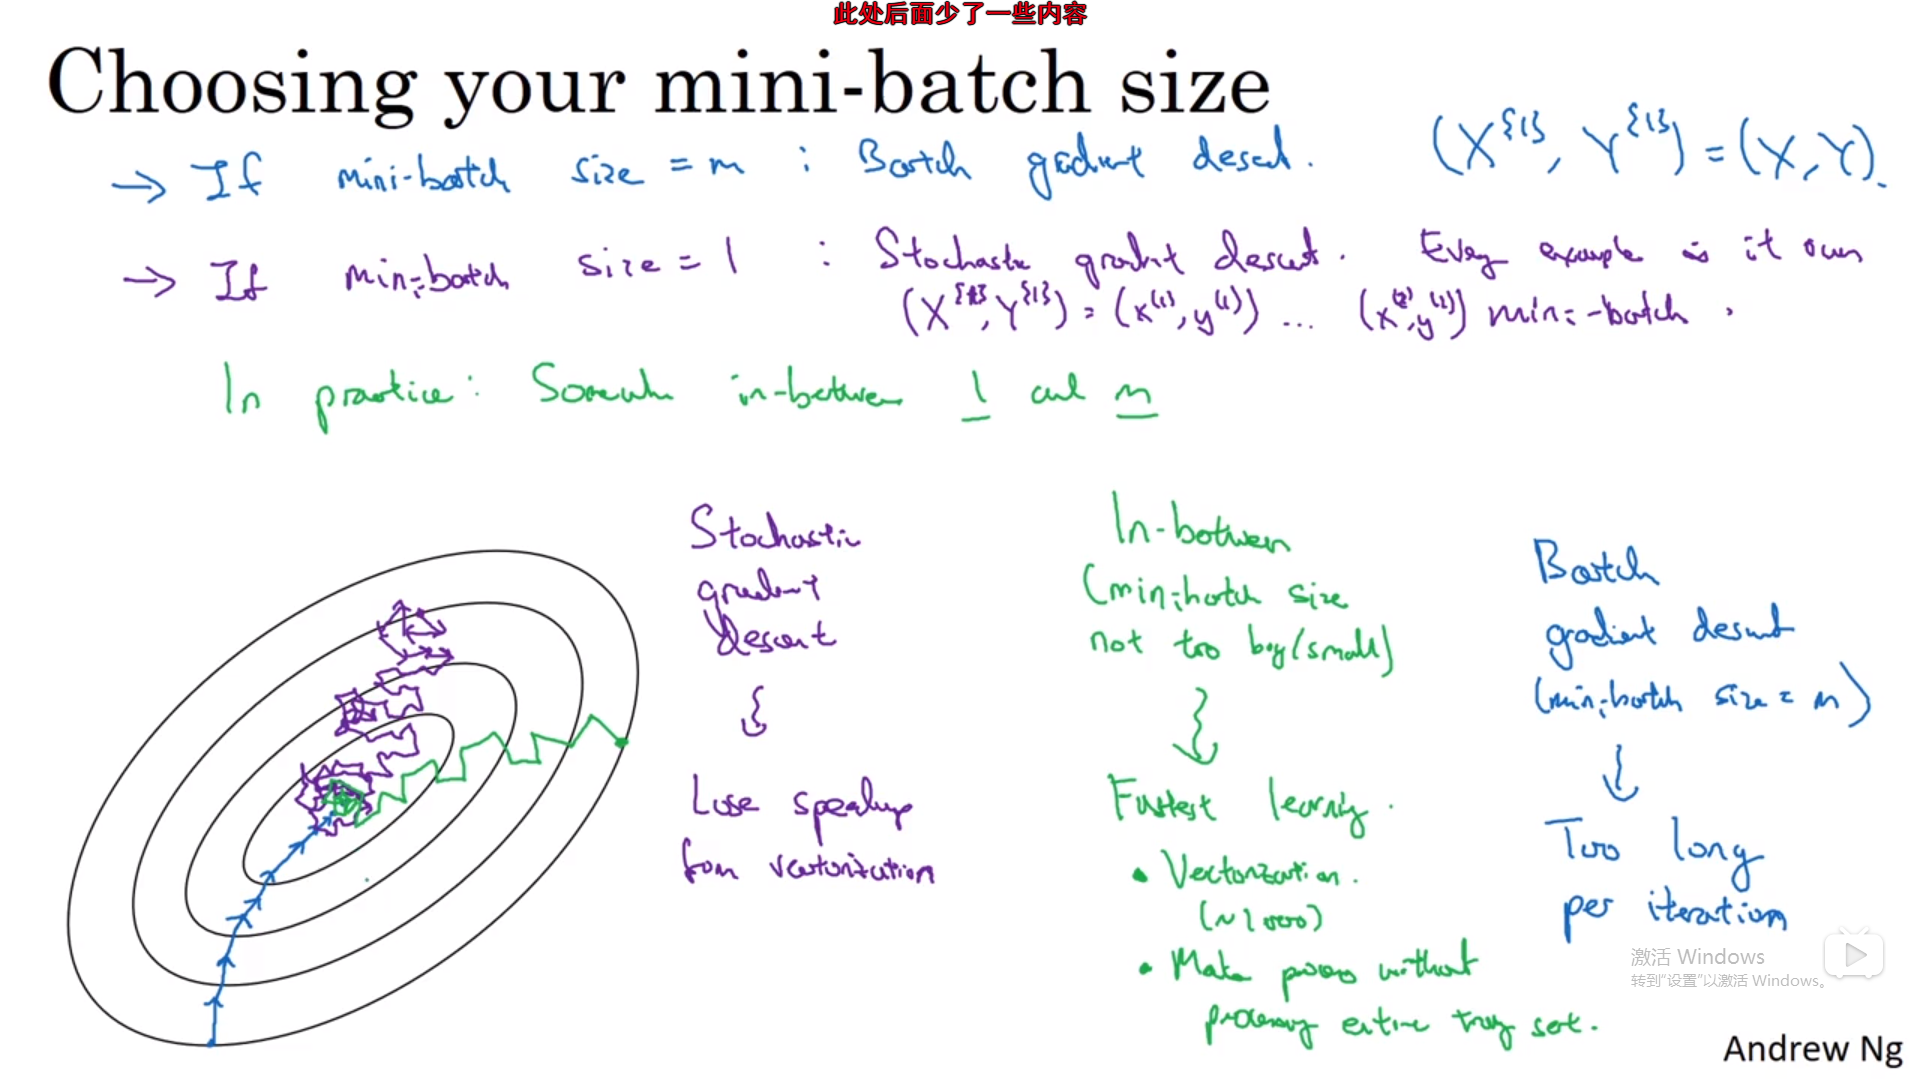 此处后面少了一些内容
Choosing your mini-batch size
→ If mini-batch size = m : Batch gradient descent. (X^{1}, Y^{1}) = (X, Y).
→ If mini-batch size = 1 : Stochastic gradient descent. Every example is it own
(X^{1}, Y^{1}) = (x^(1), y^(1)) ... (x^(2), y^(2)) mini-batch.
In practice: in-between 1 and m
Stochastic
gradient
descent
Lose speedup
from vectorization
In-between
(mini-batch size
not too big/small)
Fastest learning.
• Vectorization.
(~1000)
• Make progress without
processing entire training set.
Batch
gradient descent
(mini-batch size = m)
Too long
per iteration
激活 Windows
转到“设置”以激活 Windows。
Andrew Ng